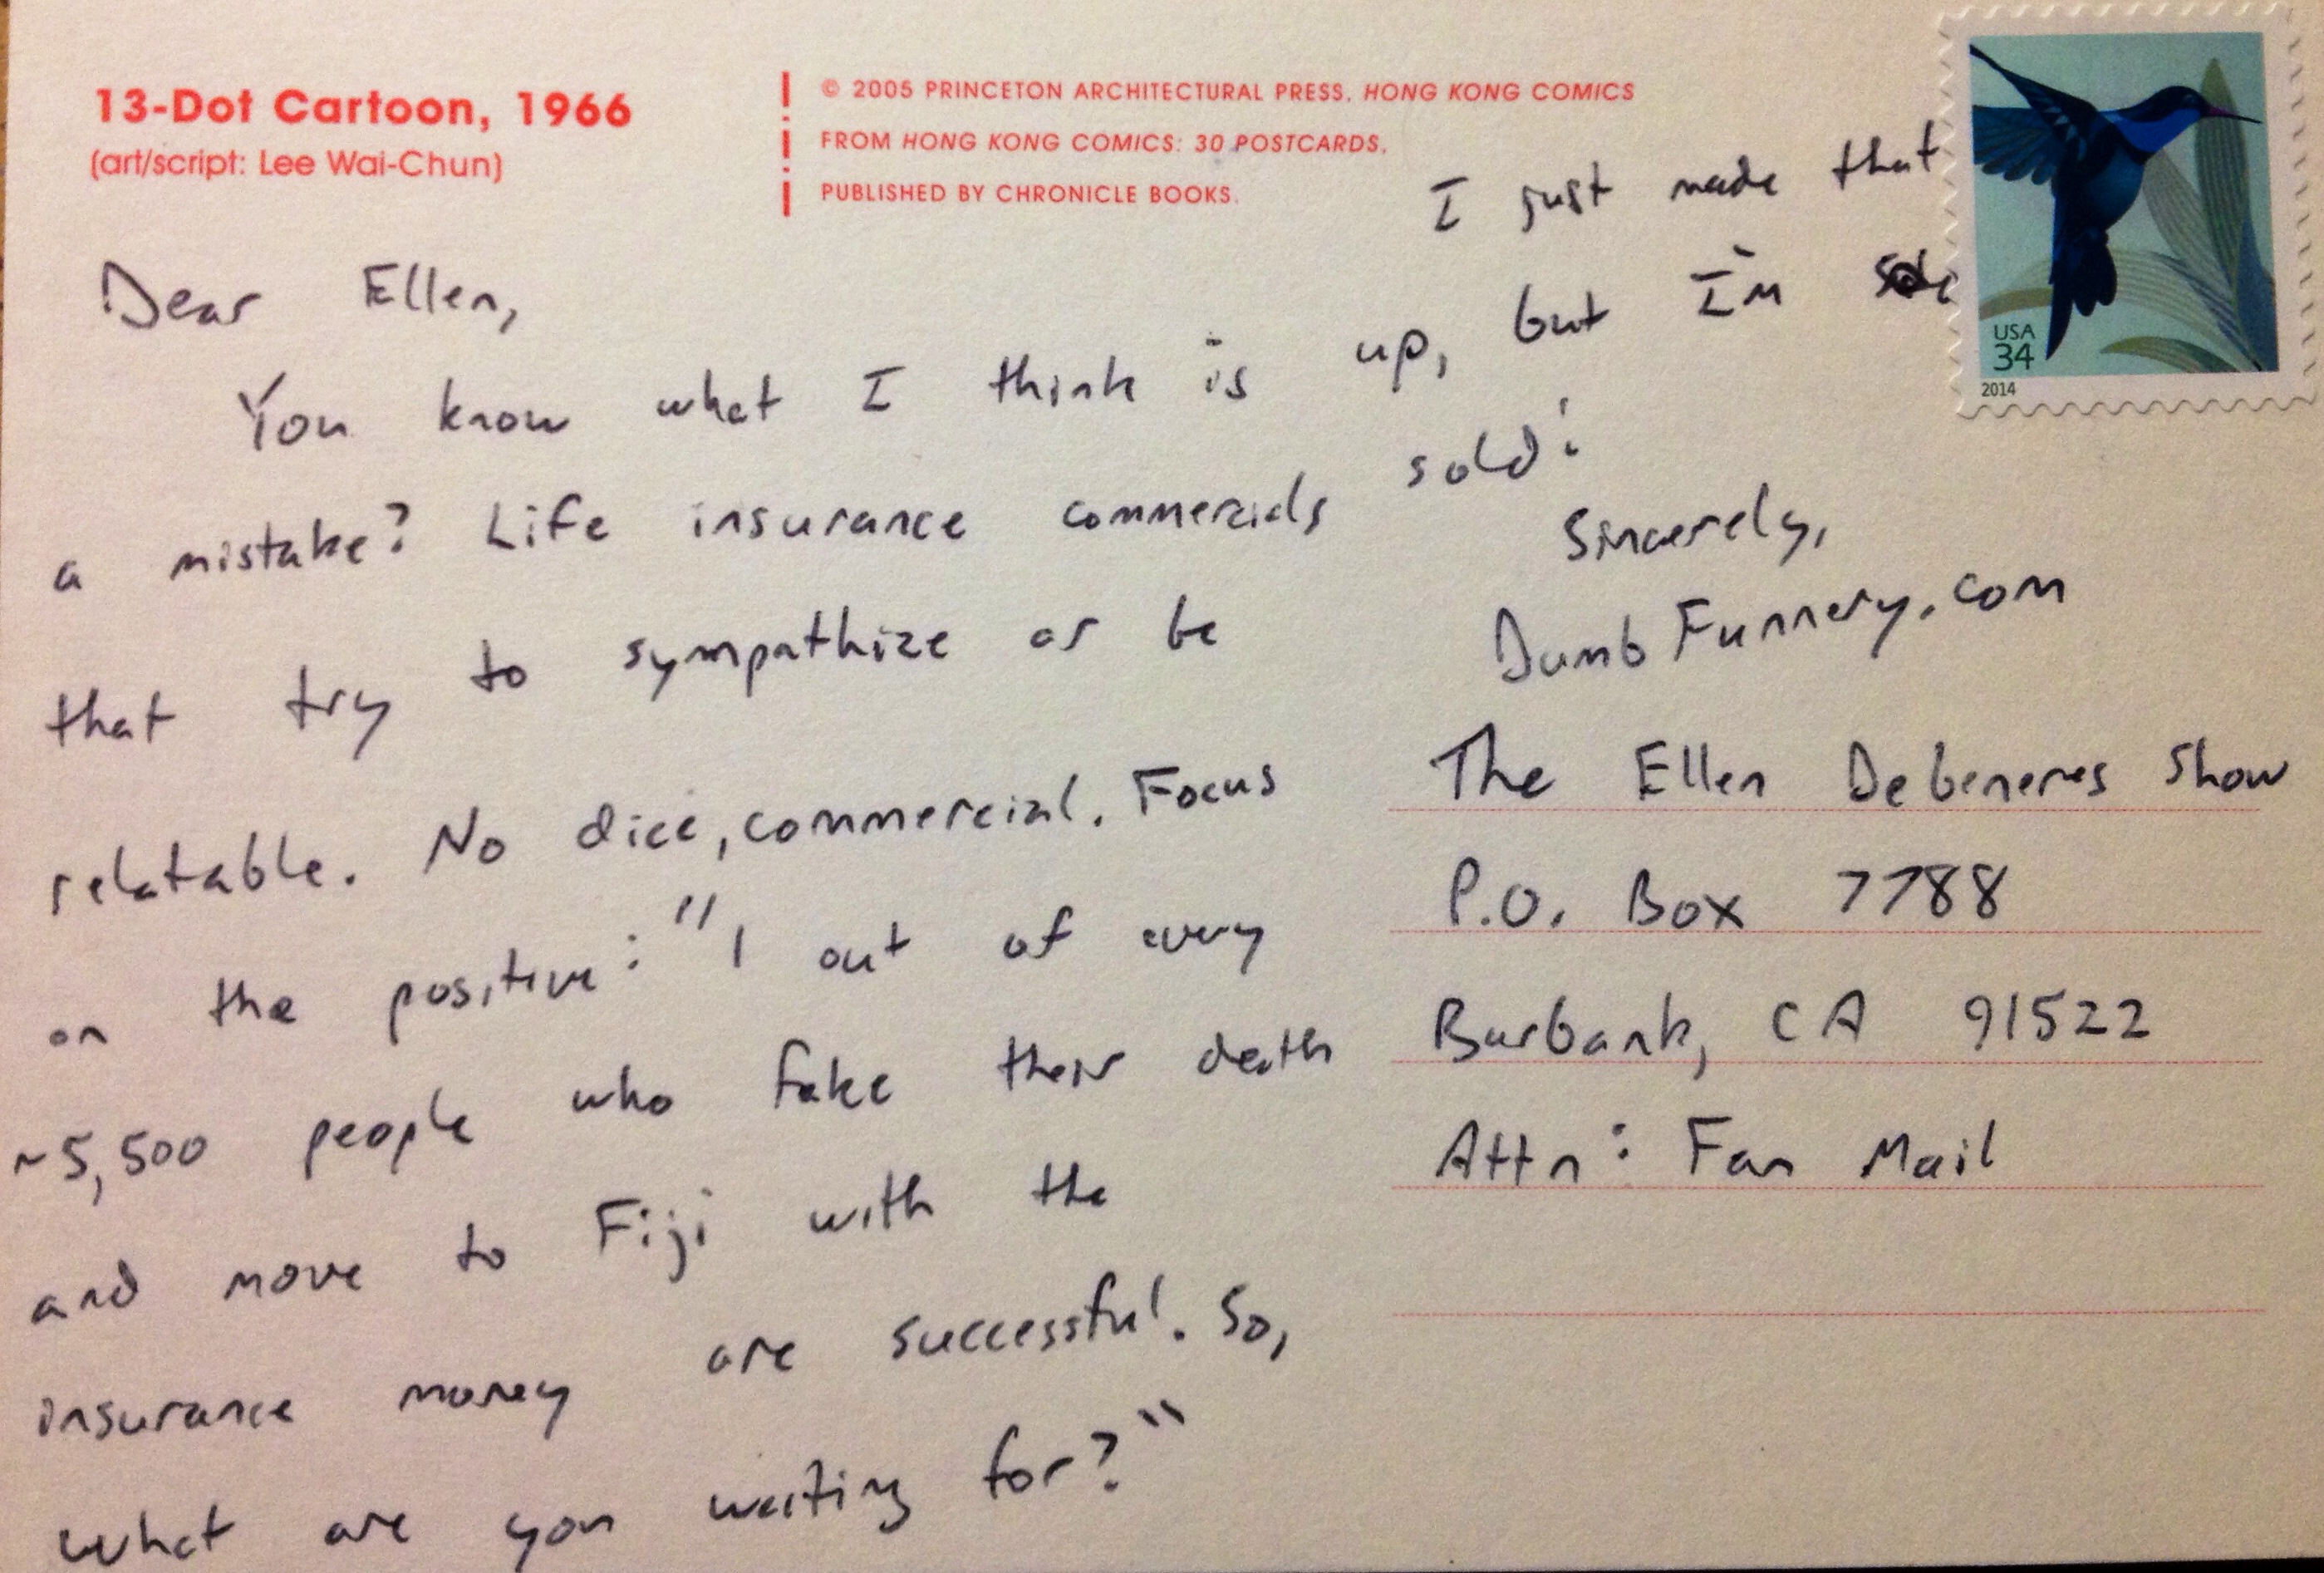 13-Dot Cartoon, 1966
(art/script: Lee Wai-Chun)
© 2005 PRINCETON ARCHITECTURAL PRESS, HONG KONG COMICS
FROM HONG KONG COMICS: 30 POSTCARDS,
PUBLISHED BY CHRONICLE BOOKS.
Dear Ellen,
You know what I think is
a mistake? Life insurance commercials
that try to sympathize or be
relatable. No dice, commercial. Focus
on the positive: "1 out of every
~5,500 people who fake their death
and move to Fiji with the
insurance money are successful. So,
what are you waiting for?"
I just made that
up, but I'm
sold!
Sincerely,
DumbFunnery.com
The Ellen Degeneres Show
P.O. Box 7788
Burbank, CA 91522
Attn: Fan Mail
USA
34
2014